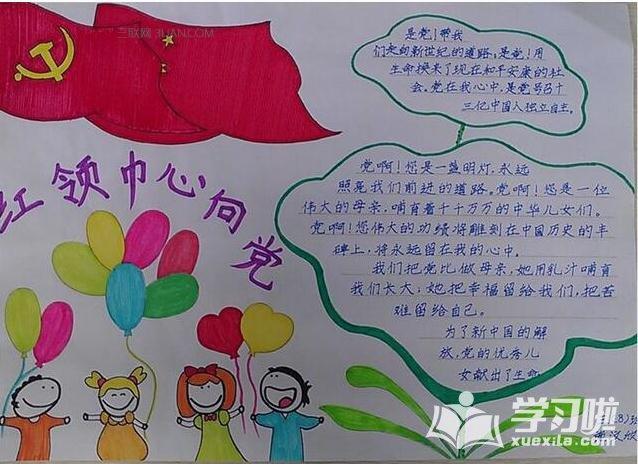 三联网 3LIAN.COM
红领巾心向党
是党!带我
们走向新世纪的道路,是党!用
生命换来了现在和平安康的社
会。党在我心中,是党号召十
三亿中国人独立自主。
党啊!您是一盏明灯,永远
照亮我们前进的道路,党啊!您是一位
伟大的母亲,哺育着千千万万的中华儿女们。
党啊!您伟大的功绩将雕刻在中国历史的丰
碑上,将永远留在我的心中。
我们把党比做母亲,她用乳汁哺育
我们长大;她把幸福留给我们,把苦
难留给自己。
为了新中国的解
放,党的优秀儿
女献出了生命
学习啦
xuexila.com